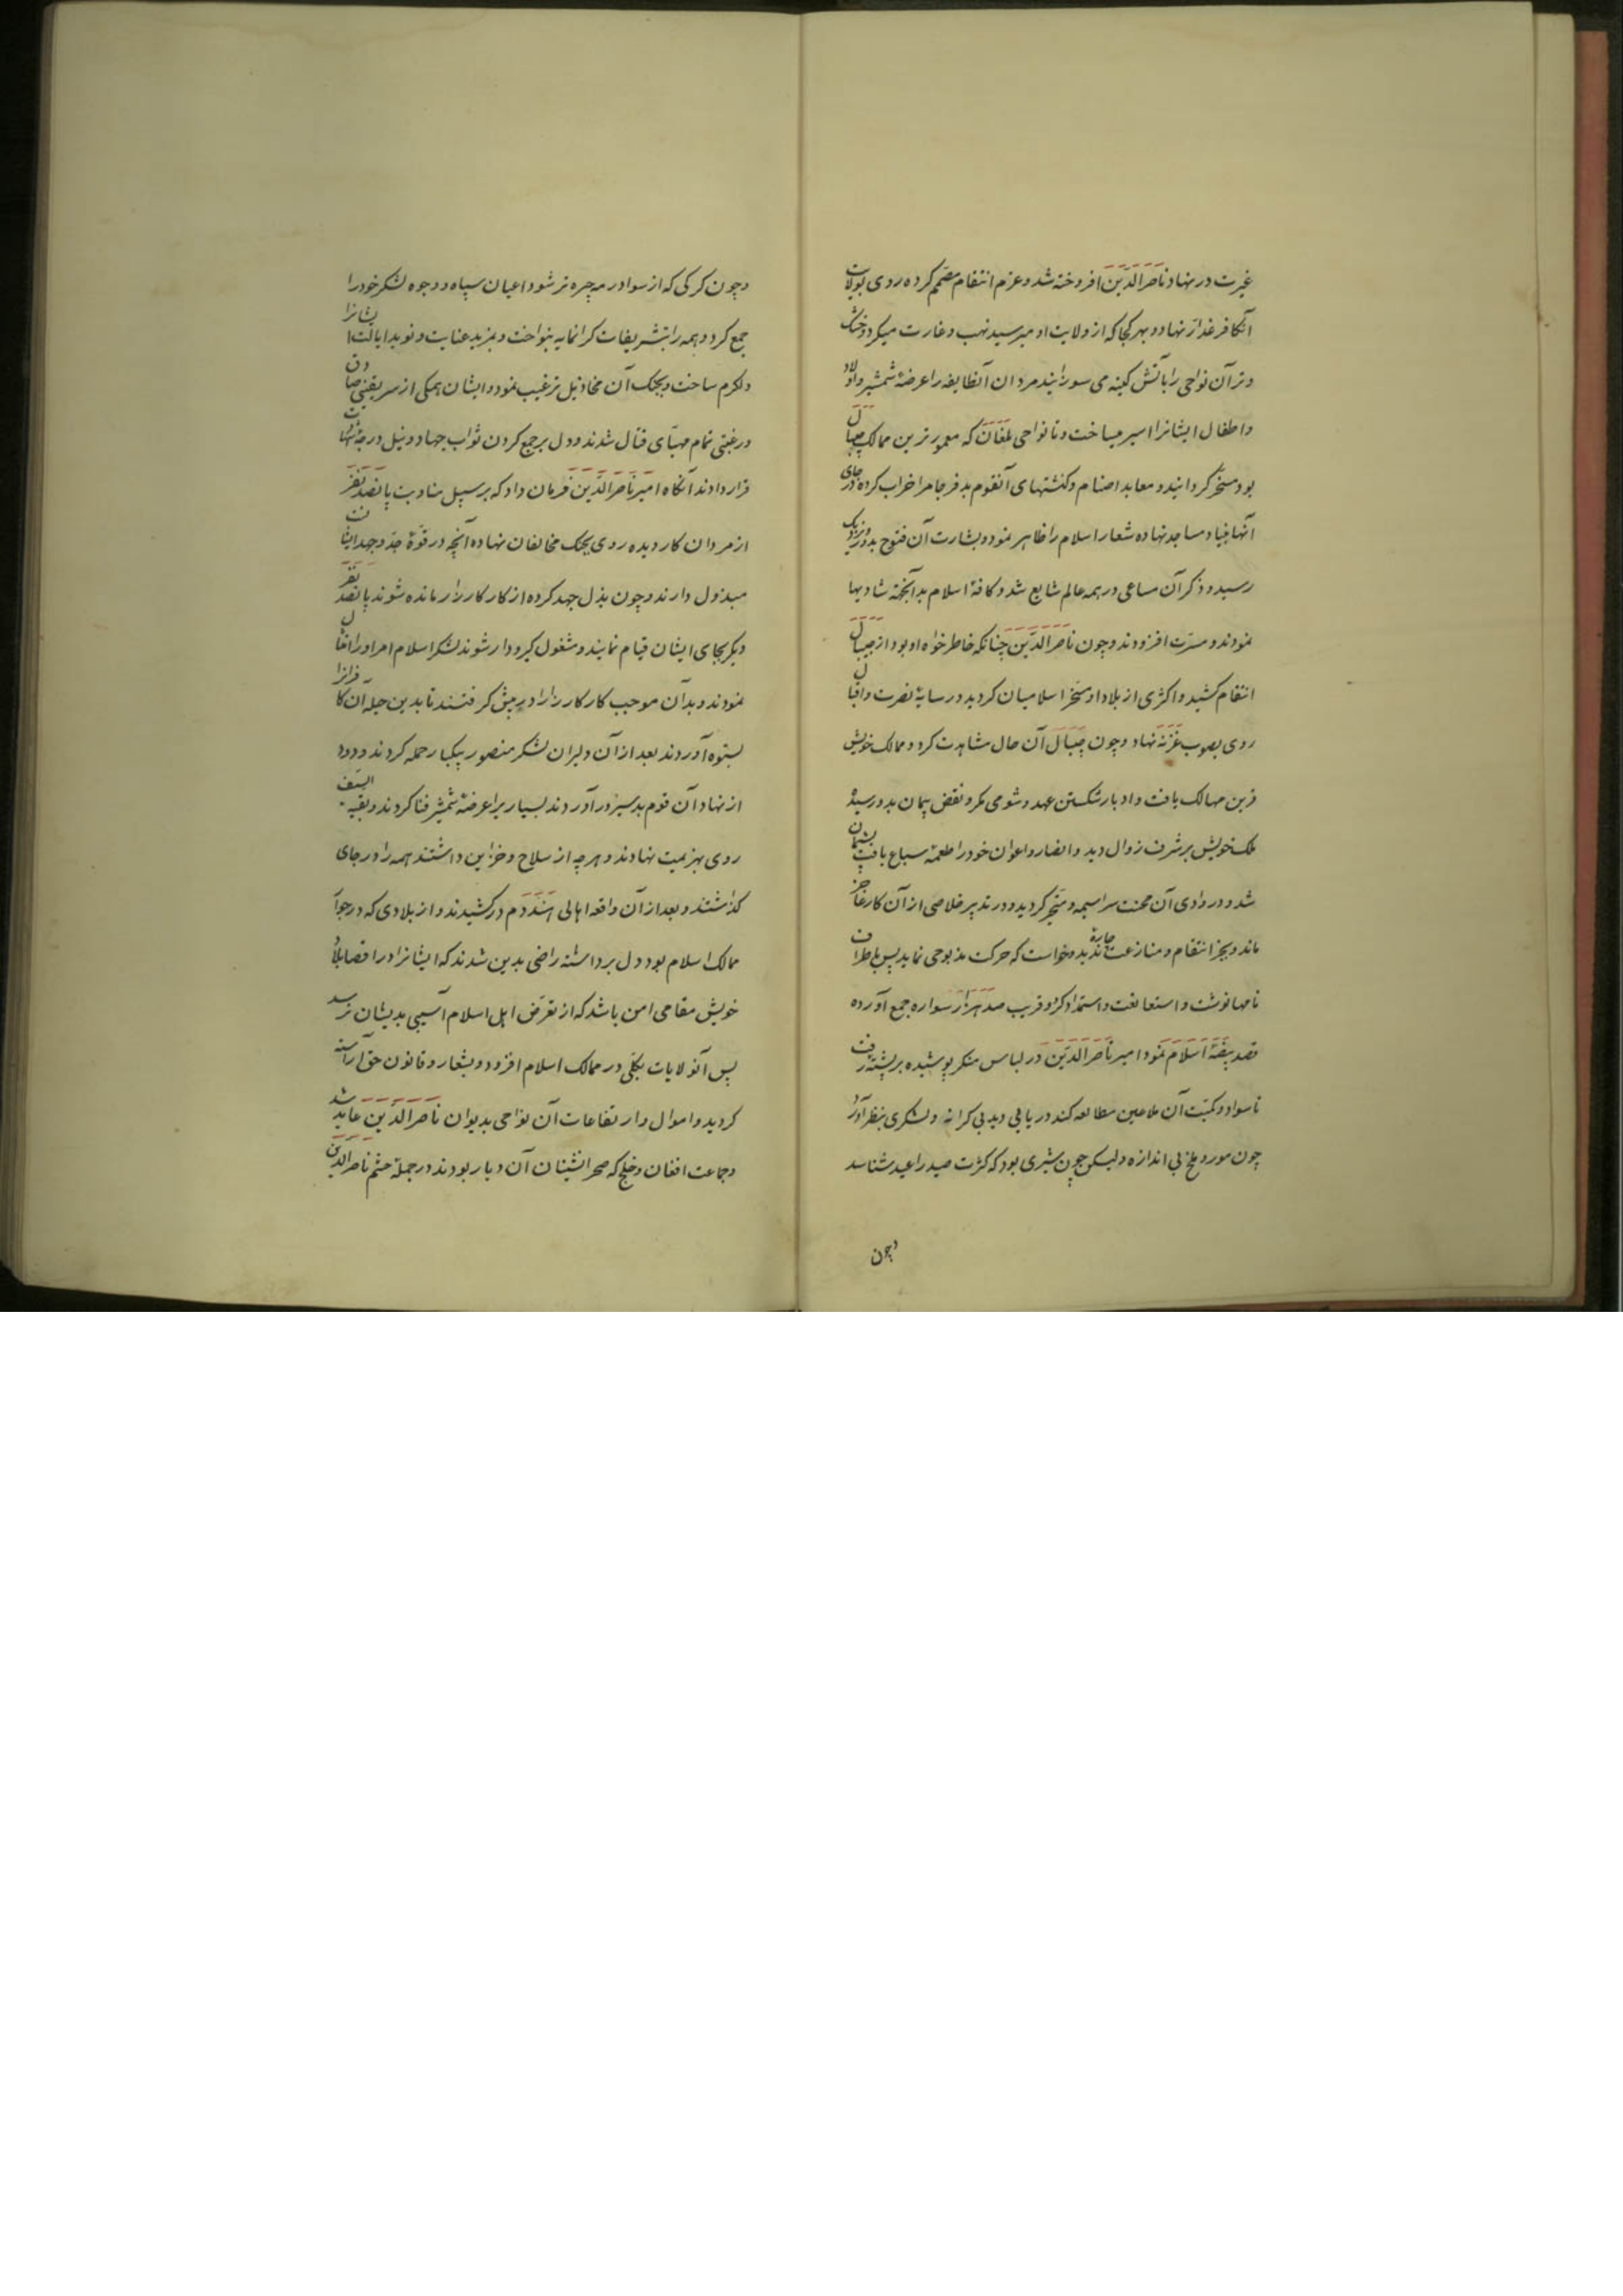 غیرت در نهاد ناصرالدّین افروخته شد و عزم انتقام مصمّم کرده روی بولایت
آنکافر غدار نهاد و بهر کجا که از ولایت او میرسید نهب و غارت میکرد و خشک
و تر آن نواحی را بآتش کینه می سوزانید مردان آنطایفه را عرضهٔ شمشیر و اولاد
و اطفال ایشانرا اسیر میساخت و تا نواحی لمغان که معمورترین ممالک جیبال
بود مسخّر کردانید و معابد اصنام و کنشتهای آنقوم بدفرجام را خراب کرده در جای
آنها بنیاد مساجد نهاده شعار اسلام را ظاهر نمود و بشارت آن فتوح بدور و نزدیک
رسید و ذکر آن مساعی در همه عالم شایع شد و کافهٔ اسلام بدانجهة شادیها
نمودند و مسرّت افزودند و چون ناصرالدّین چنانکه خاطر خواه او بود از جیبال
انتقام کشید و اکثری از بلاد او مسخر اسلامیان کردید در سایهٔ نصرت و اقبال
روی بصوب غزنه نهاد و چون جیبال آن حال مشاهدت کرد و ممالک خویش
قرین مهالک یافت و ادبار شکستن عهد و شومی مکر و نقض پیمان بدو رسیدهٔ
ملک خویش بر شرف زوال دید و انصار و اعوان خود را طعمهٔ سباع یافت پشیمان
شد و در وادی آن محنت سراسیمه و متحیّر کردید و در تدبیر خلاصی از آن کار عاجز
ماند و بجز انتقام و منازعت چارهٔ ندید و خواست که حرکت مذبوحی نماید پس باطراف
نامها نوشت و استعانت و استمداد کرد و قریب صد هزار سواره جمع آورده
قصد بیضهٔ اسلام نمود امیر ناصرالدّین در لباس متنکر پوشیده بر پشته رفت
تا سواد و کمیّت آن ملاعین مطالعه کند دریایی دید بی کرانه و لشکری بنظر آورد
چون مور و ملخ بی اندازه و لیکن چون شیری بود که کثرت صید را عید شناسد
و چون
و چون کرکی که از سواد رمه چیره تر شود اعیان سپاه و وجوه لشکر خود را
جمع کرد و همه را بتشریفات کرانمایه بنواخت و بمزید عنایت و نوید ایالت ایشانرا
دلکرم ساخت و بجنک آن مخاذیل ترغیب نمود و ایشان همکی از سر یقینی صادق
و رغبتی تمام مهیّای قتال شدند و دل بر جمع کردن ثواب جهاد و نیل درجهٔ شهادت
قرار دادند آنکاه امیر ناصرالدّین فرمان داد که بر سبیل مناوبت پانصد نفر
از مردان کار دیده روی بجنک مخالفان نهاده آنچه در قوّهٔ جدّ و جهد ایشانست
مبذول دارند و چون بذل جهد کرده از کار کارزار مانده شوند پانصد نفر
دیکر بجای ایشان قیام نمایند و مشغول کیرودار شوند لشکر اسلام امر او را امتثال
نمودند و بدان موجب کار کارزار را در پیش کرفتند تا بدین حیله آن کافرانرا
بستوه آوردند بعد از آن دلیران لشکر منصور بیکبار حمله کردند و دود
از نهاد آن قوم بدسیر درآوردند بسیاریرا عرضهٔ شمشیر فنا کردند و بقیه السّیف
روی بهزیمت نهادند و هر چه از سلاح و خزاین داشتند همه را در جای
کذاشتند و بعد از آن واقعه اهالی هند دم درکشیدند و از بلادی که در جوار
ممالک اسلام بود دل برداشته راضی بدین شدند که ایشانرا در اقصا بلاد
خویش مقامی امن باشد که از تعرّض اهل اسلام آسیبی بدیشان نرسد
پس آنولایات بکلّی در ممالک اسلام افزود و بشعار و قانون حق آراسته
کردید و اموال و ارتفاعات آن نواحی بدیوان ناصرالدّین عاید شد
و جماعت افغان و خلج که صحرانشینان آن دیار بودند در جملهٔ حشم ناصرالدّین